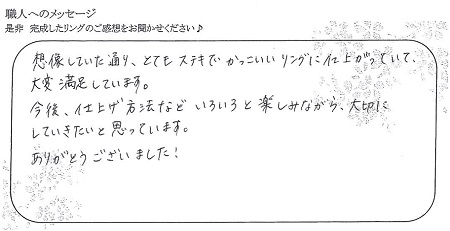 職人へのメッセージ
是非 完成したリングのご感想をお聞かせください♪
想像していた通り、とてもステキでかっこいいリングに仕上がっていて、
大変満足しています。
今後、仕上げ方法などいろいろと楽しみながら、大切に
していきたいと思っています。
ありがとうございました!